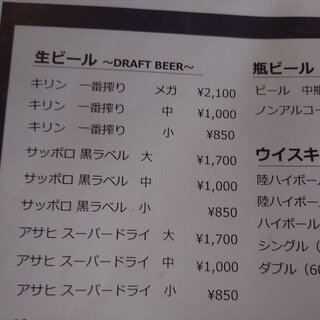 生ビール ～DRAFT BEER～
キリン 一番搾り メガ ¥2,100
キリン 一番搾り 中 ¥1,000
キリン 一番搾り 小 ¥850
サッポロ 黒ラベル 大 ¥1,700
サッポロ 黒ラベル 中 ¥1,000
サッポロ 黒ラベル 小 ¥850
アサヒ スーパードライ 大 ¥1,700
アサヒ スーパードライ 中 ¥1,000
アサヒ スーパードライ 小 ¥850
瓶ビール
ビール 中瓶
ノンアルコー
ウイスキ
陸ハイボール
陸ハイボール
ハイボール
シングル（
ダブル（60